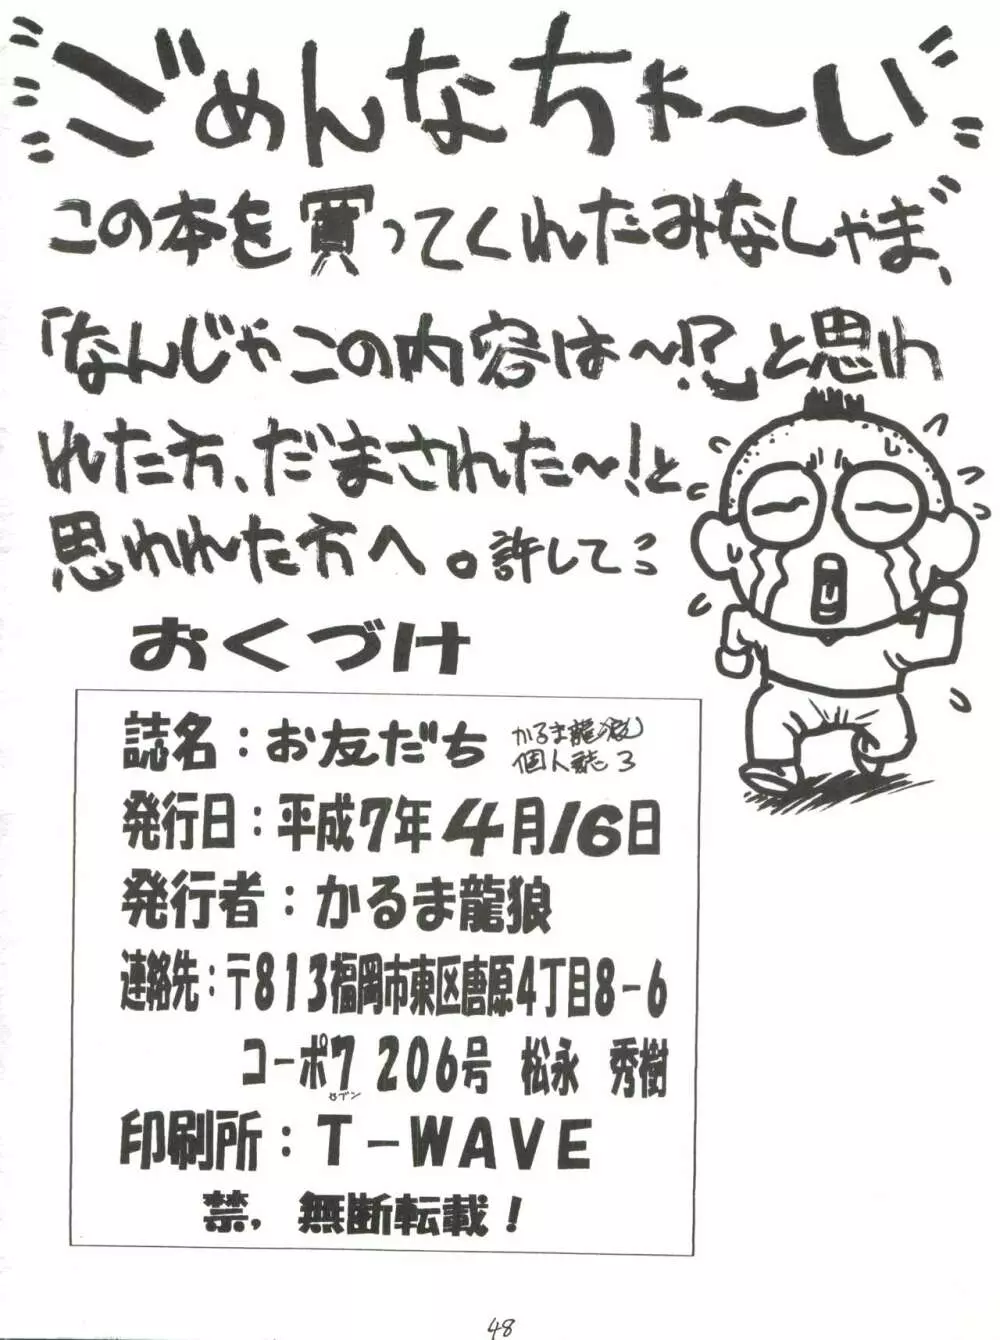 ごめんなちゃ～い
この本を買ってくれたみなしゃま、
「なんじゃこの内容は～!?」と思わ
れた方、だまされた～!と
思われた方へ。許して
おくづけ
誌名：お友だち かるま龍狼
個人誌3
発行日：平成7年4月16日
発行者：かるま龍狼
連絡先：〒813福岡市東区唐原4丁目8-6
コーポ7 206号 松永 秀樹
セブン
印刷所：T-WAVE
禁，無断転載！
48